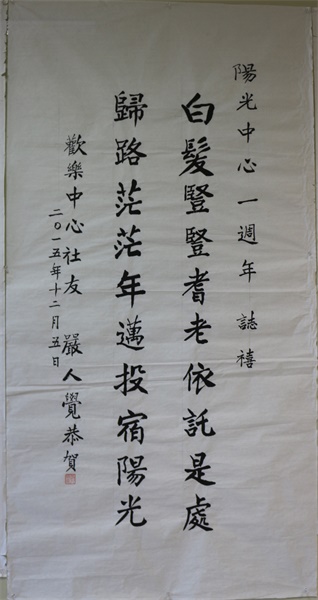 陽光中心一週年誌禧
白髮豎豎耆老依託是處
歸路茫茫年邁投宿陽光
歡樂中心社友嚴人覺恭賀
二〇一五年十二月五日